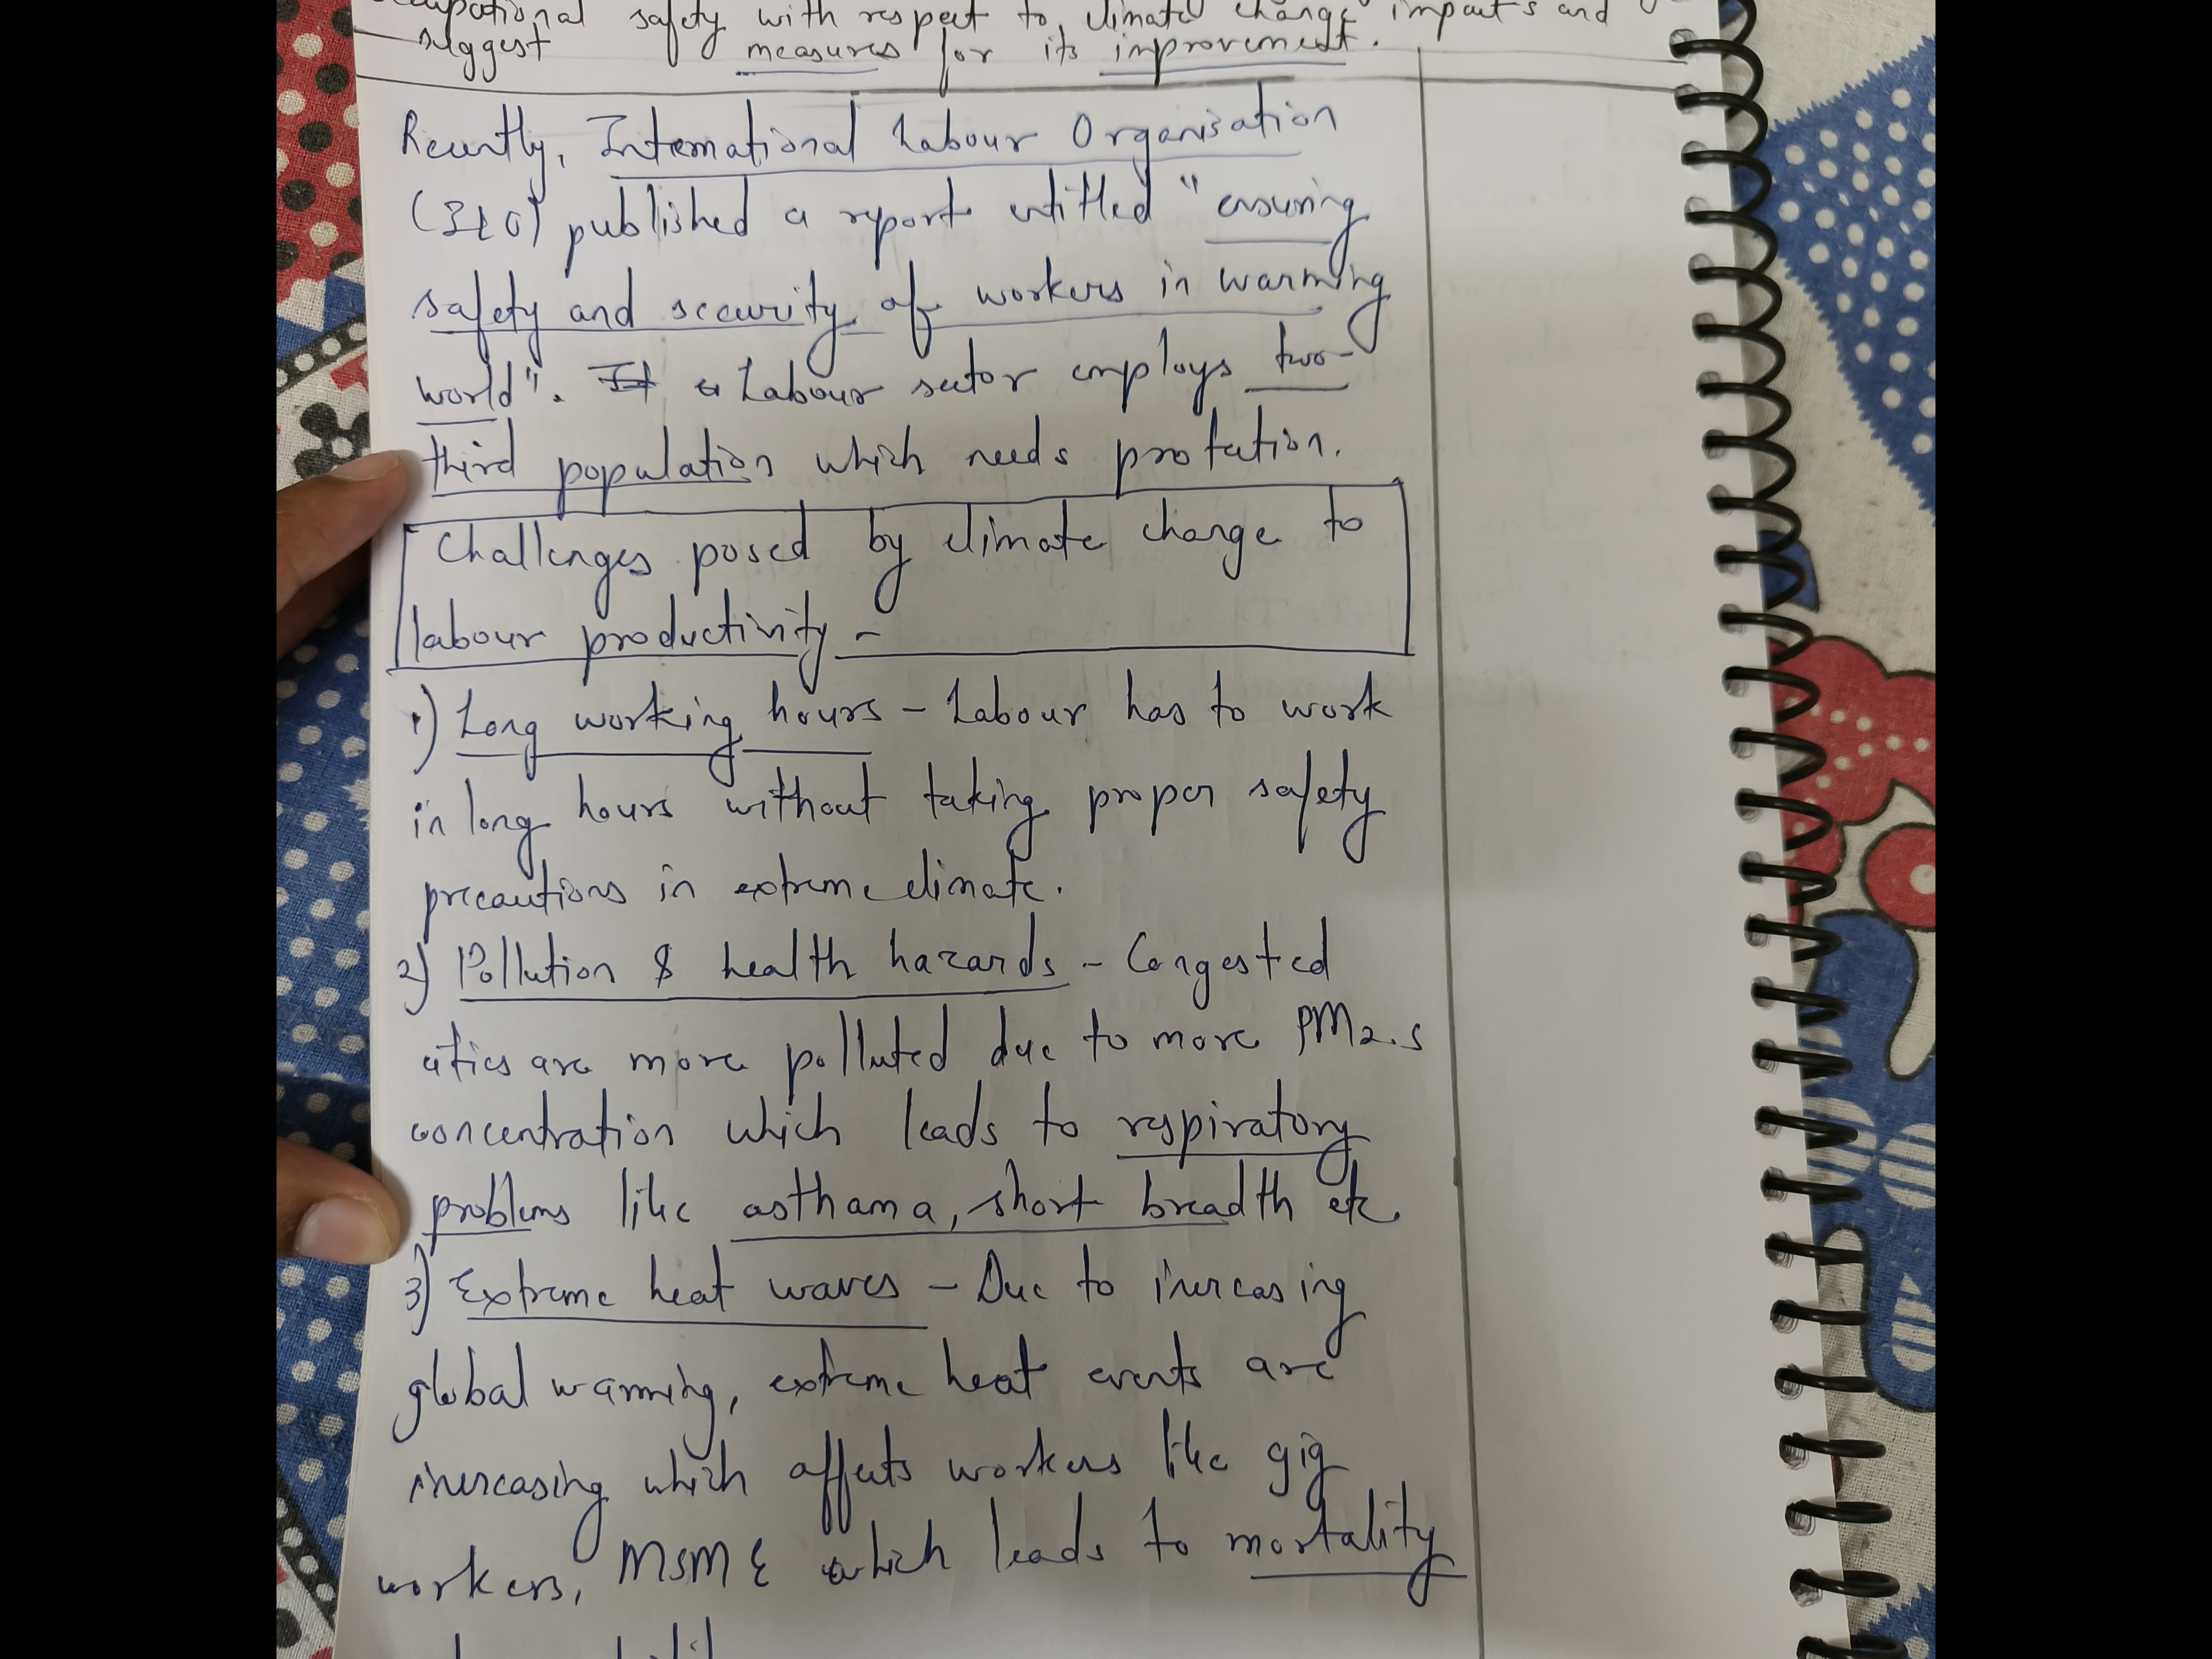 occupational safety with respect to climate change impacts and
suggest measures for its improvement.
Recently, International Labour Organisation
(ILO) published a report entitled "ensuring
safety and security of workers in warming
world". Labour sector employs two-
third population which needs protection.
Challenges posed by climate change to
labour productivity -
1) Long working hours - Labour has to work
in long hours without taking proper safety
precautions in extreme climate.
2) Pollution & health hazards - Congested
cities are more polluted due to more PM2.5
concentration which leads to respiratory
problems like asthama, short breadth etc.
3) Extreme heat waves - Due to increasing
global warming, extreme heat events are
increasing which affects workers like gig
workers, MSME which leads to mortality